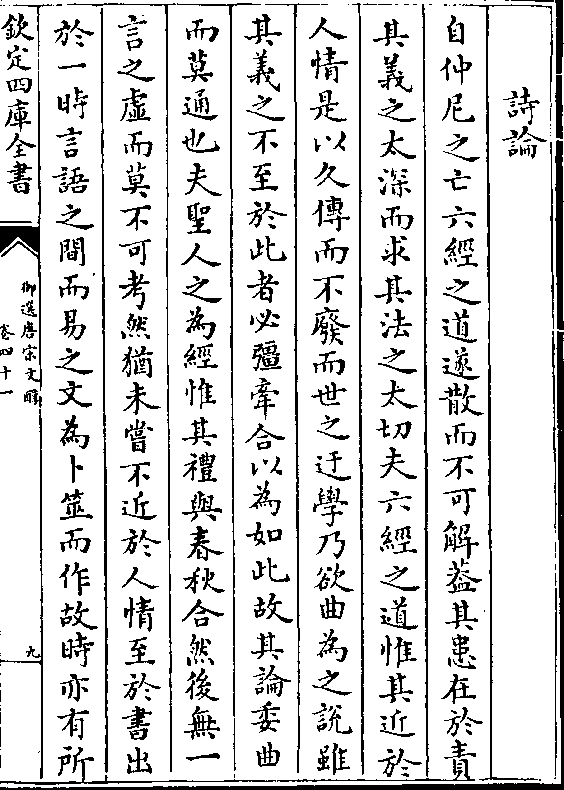 詩論
自仲尼之亡六經之道遂散而不可解葢其患在於責
其義之太深而求其法之太切夫六經之道惟其近於
人情是以久傳而不廢而世之迂學乃欲曲為之說雖
其義之不至於此者必彊牽合以為如此故其論委曲
而莫通也夫聖人之為經惟其禮與春秋合然後無一
言之虛而莫不可考然猶未嘗不近於人情至於書出
於一時言語之間而易之文為卜筮而作故時亦有所
欽定四庫全書
御選唐宋文醇
卷四十一
九